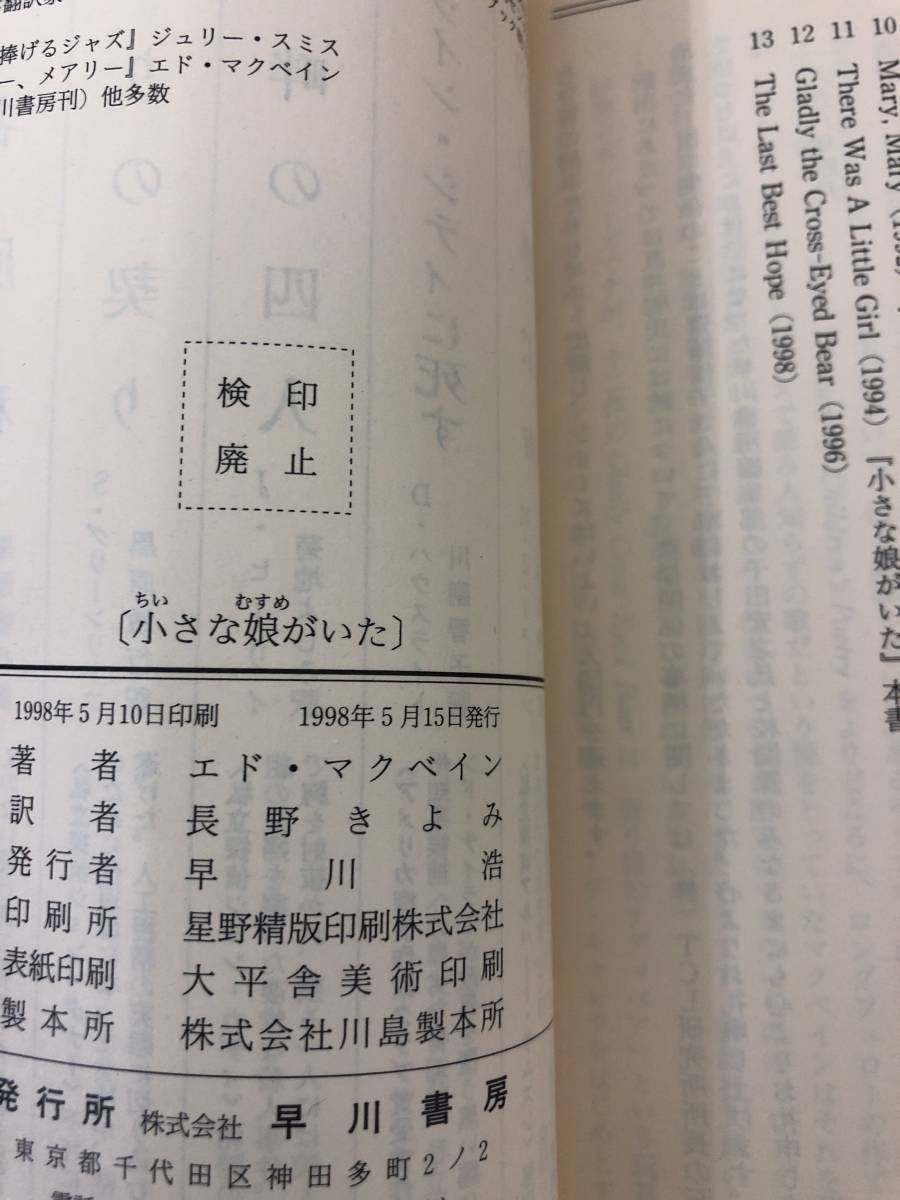 捧げるジャズ』ジュリー・スミス
ー、メアリー』エド・マクベイン
川書房刊）他多数
検印
廃止
ちい むすめ
〔小さな娘がいた〕
1998年5月10日印刷 1998年5月15日発行
著者 エド・マクベイン
訳者 長野きよみ
発行者 早川浩
印刷所 星野精版印刷株式会社
表紙印刷 大平舎美術印刷
製本所 株式会社川島製本所
発行所 株式会社 早川書房
東京都千代田区神田多町2ノ2
10 Mary, Mary
11 There Was A Little Girl (1994) 『小さな娘がいた』本書
12 Gladly the Cross-Eyed Bear (1996)
13 The Last Best Hope (1998)